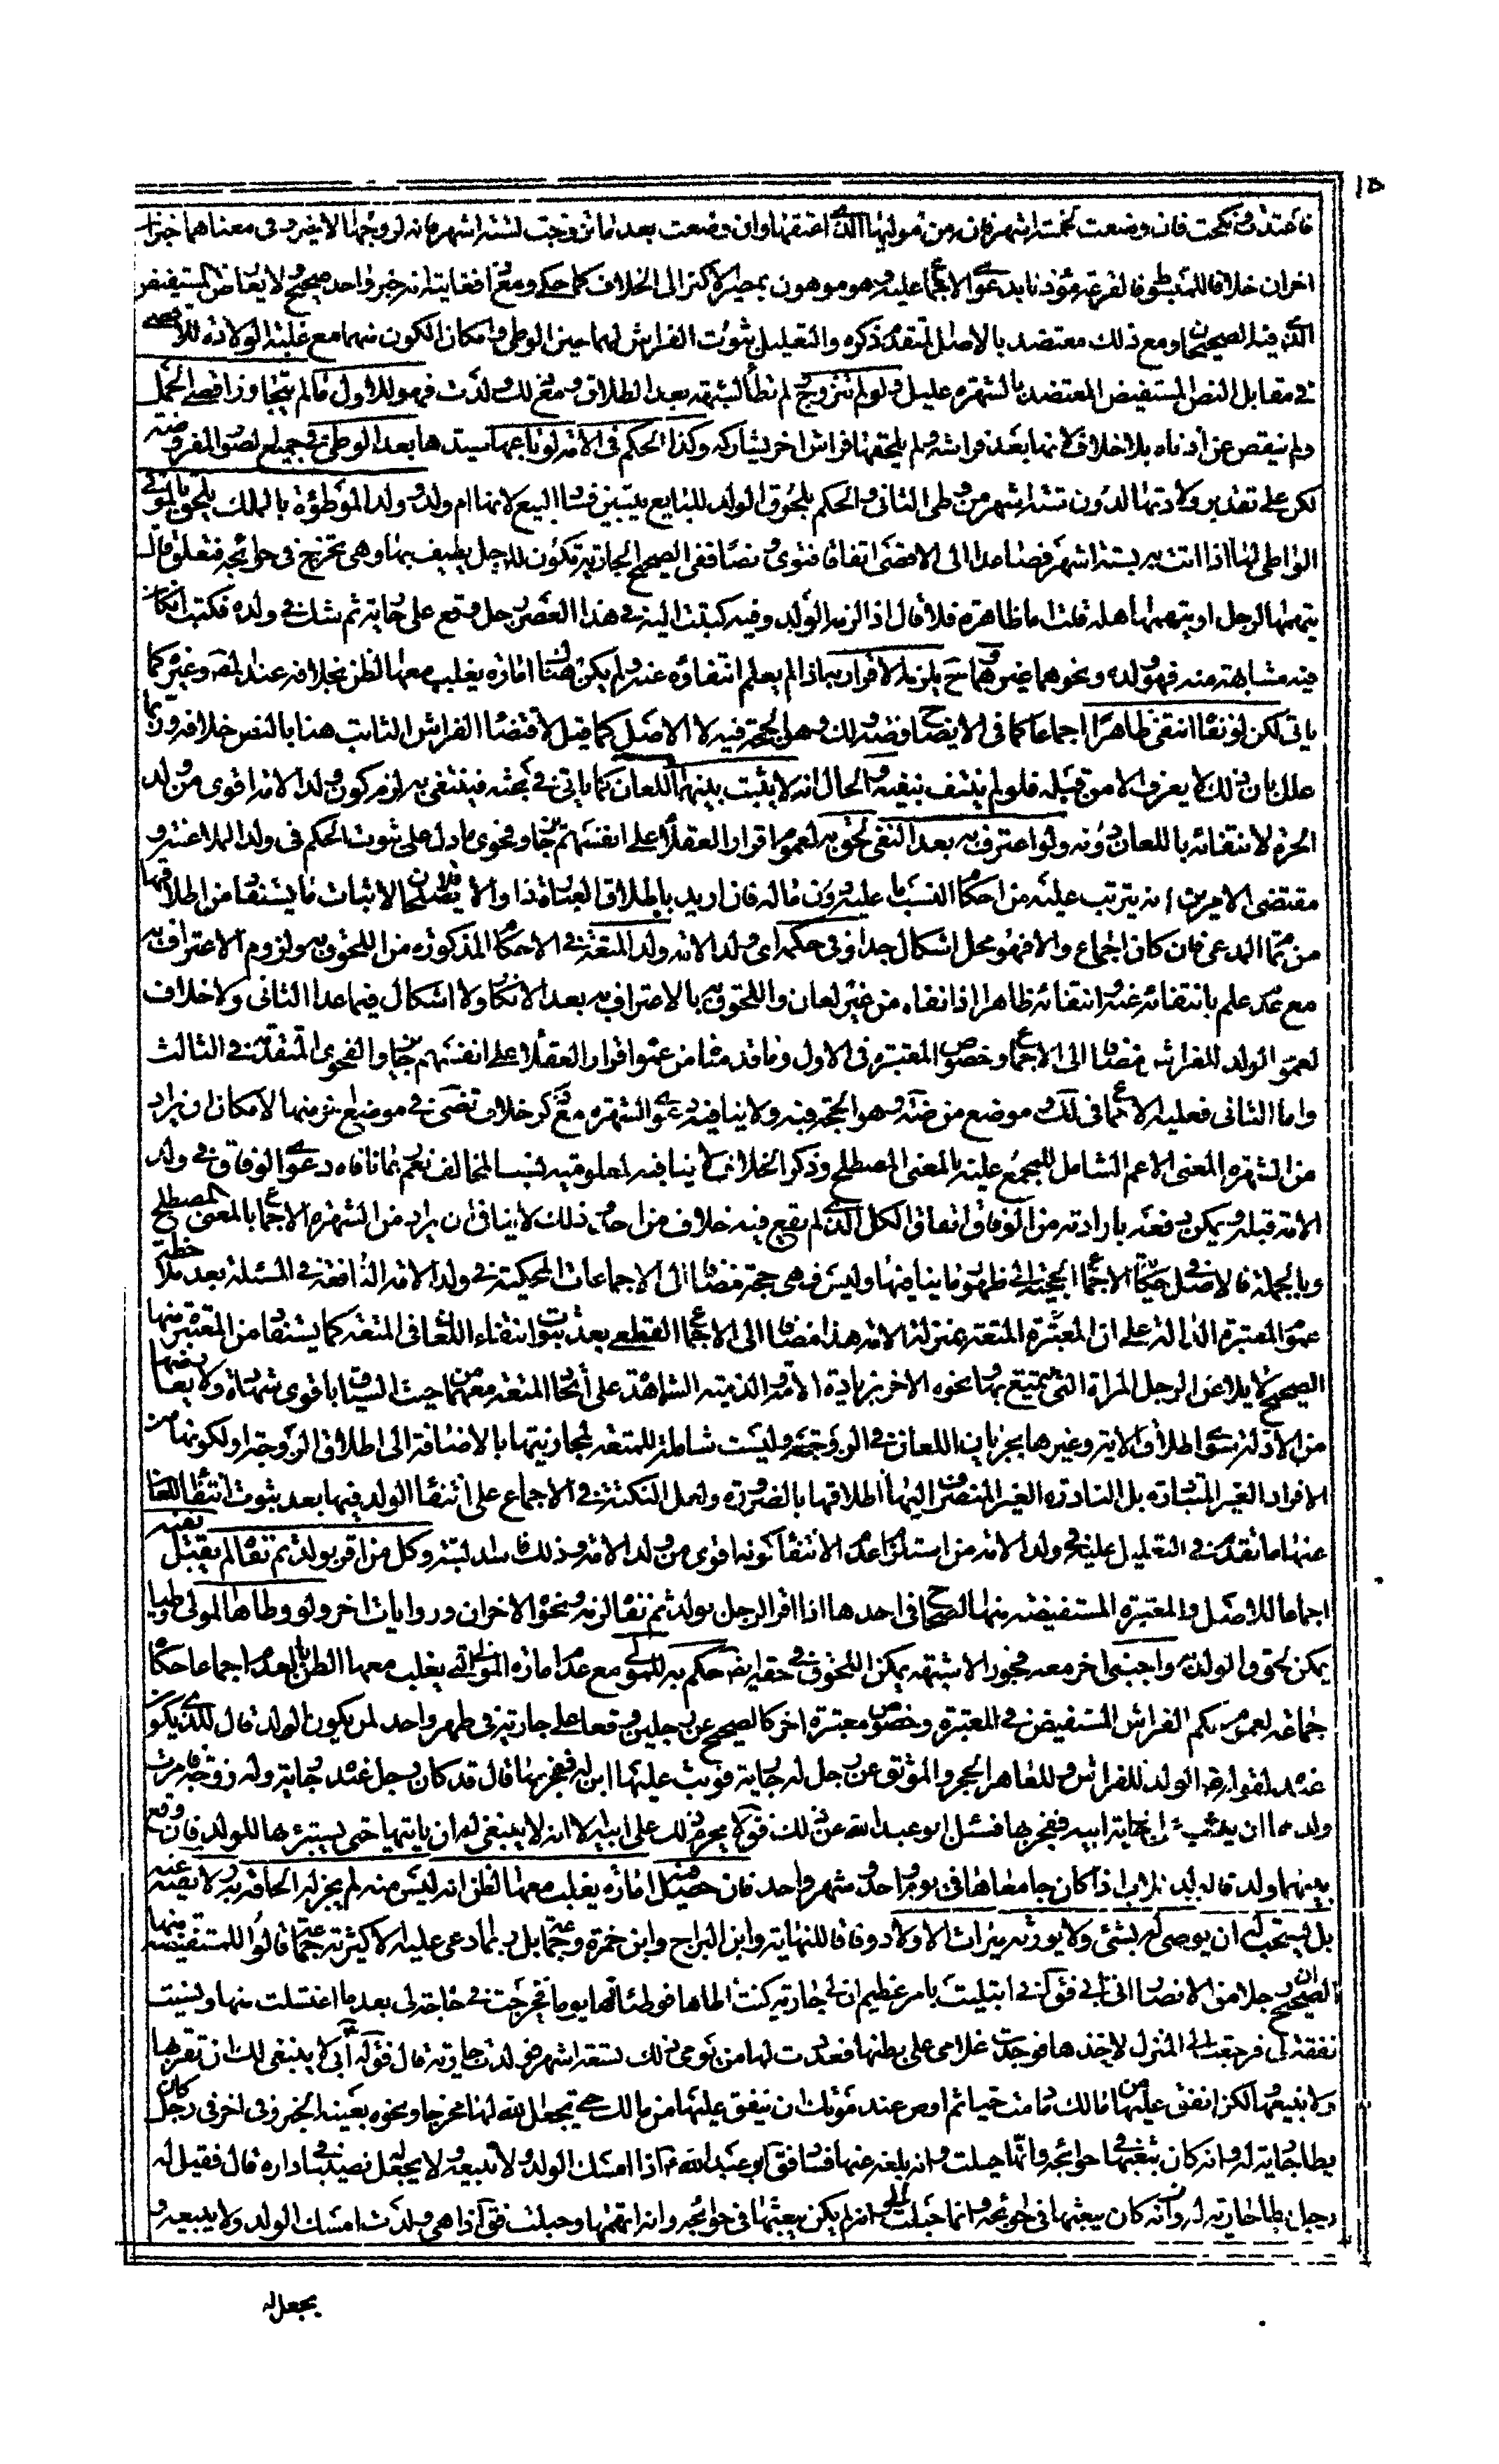 ١٥
فاعتدت ونكحت فان وضعت لخمسة اشهر فانه من مولاها الذي اعتقها وان وضعت بعد ما تزوجت لستة اشهر فانه لزوجها الاخير وفي معناهما خبران
اخران خلافا للمبسوط فالقرعة مؤذنا بدعوى الاجماع عليه وهو موهون بمصير الاكثر الى الخلاف كما حكي ومع فغايته انه خبر واحد صحيح لا يعارض المستفيض
الذي فيه الصحيحان ومع ذلك معتضد بالاصل المتقدم ذكره والتعليل بثبوت الفراش لهما حين الوطي وامكان الكون منهما مع غلبة الولادة للاقصى
في مقابل النص المستفيض المعتضد بالشهرة عليل ولو لم تتزوج ولم توطأ لشبهة بعد الطلاق ومع ذلك ولدت فهو للاول ما لم يتجاوز اقصى الحمل
ولم ينقص عن ادناه بلا خلاف لانها بعد فراشه ولم يلحقها فراش اخر يشاركه وكذا الحكم في الامة لو باعها سيدها بعد الوطي في جميع الصور المفروضة
لكن على تقدير ولادتها لدون ستة اشهر من وطي الثاني والحكم بلحوق الولد للبايع يتبين فساد البيع لانها ام ولد وولد الموطوءة بالملك يلحق بالمولى
الواطي لها اذا اتت به بستة اشهر فصاعدا الى الاقصى اتفاقا فتوى ونصا ففي الصحيح الجارية تكون للرجل يطيف بها وهي تخرج في حوائجه فتعلق قال
يتهمها الرجل او يتهمها اهله قلت اما ظاهرة فلا قال اذا لزمه الولد وفيه كتبت اليه في هذا العصر رجل وقع على جارية ثم شك في ولده فكتب ان كان
فيه مشابهة منه فهو ولده ونحوهما غيرهما وح يلزمه الاقرار به اذا لم يعلم انتفاؤه عنه ولم يكن هناك امارة يغلب معها الظن بخلافه عند المص وغيره كما
ياتي لكن لو نفاه انتفى ظاهرا اجماعا كما في الايضاح وضة ولك وهو الحجة فيه لا الاصل كما قيل لاقتضاء الفراش الثابت هنا بالنص خلافه وربما
علل بان ذلك لا يعرف الا من قبله فلو لم ينتف بنفيه والحال انه لا يثبت بينهما اللعان كما ياتي في بحثه فينتفي به لزم كون ولد الامة اقوى من ولد
الحرة لانتفائه باللعان دونه ولو اعترف به بعد النفي لحق به لعموم اقرار العقلاء على انفسهم جايز وفحوى ما دل على ثبوت الحكم في ولد الملاعنة و
مقتضى الامرين انه يترتب عليه من احكام النسب ما عليه دون ما له فان اريد باطلاق العبارة ذا والا فلا يصلحان لاثبات ما يستفاد من اطلاقها
من تمام المدعى فان كان اجماع والا فهو محل اشكال جدا وفي حكمه اي ولد الامة ولد المتعة في الاحكام المذكورة من اللحوق به ولزوم الاعتراف به
مع عدم علم بانتفائه عنه وانتفائه ظاهرا اذا نفاه من غير لعان واللحوق به بالاعتراف به بعد الانكار ولا اشكال فيما عدا الثاني ولا خلاف
لعموم الولد للفراش مضافا الى الاجماع وخصوص المعتبرة في الاول وما قدمنا من عموم اقرار العقلاء على انفسهم جايز والفحوى المتقدمة في الثالث
واما الثاني فعليه الاجماع في لك وموضع من ضة وهو الحجة فيه ولا ينافيه دعوى الشهرة مع ذكر خلاف نقض في موضع اخر منها لامكان ان يراد
من الشهرة المعنى الاعم الشامل للمجمع عليه بالمعنى المصطلح وذكر الخلاف لا ينافيه لمعلومية نسب المخالف نعم ربما نافاه دعوى الوفاق في ولد
الامة قبله ويمكن دفعه بارادته من الوفاق اتفاق الكل الذي لم يقع فيه خلاف من احد وذلك لا ينافي ان يراد من الشهرة الاجماع بالمعنى المصطلح
وبالجملة فالاصل في حكاية الاجماع الحجية الى ظهور ما ينافيها وليس فهي حجة مضافا الى الاجماعات المحكية في ولد الامة النافعة في المسئلة بعد ملاحظة
عموم المعتبرة الدالة على ان المتعة بمنزلة الامة هذا مضافا الى الاجماع القطعي بعد ثبوت انتفاء اللعان في المتعة كما يستفاد من المعتبرة منها
الصحيح لا يلاعن الرجل المراة التي يتمتع بها ونحوه الاخر بزيادة الامة والذمية الشاهدة على اتحاد المتعة معهما من حيث السياق باقوى شهادة ولا يعارضها
من الادلة سوى اطلاق الاية وغيرها بجريان اللعان في الزوجة وليست شاملة للمتعة لمجازيتها بالاضافة الى اطلاق الزوجة او لكونها من
الافراد الغير المتبادرة بل النادرة الغير المنصرف اليها اطلاقها بالضرورة ولعل النكتة في الاجماع على انتفاء الولد فيها بعد ثبوت انتفاء اللعان
عنها ما تقدم في التعليل عليه في ولد الامة من استلزام عدم الانتفاء كونه اقوى من ولد الامة وذلك فاسد البتة وكل من اقر بولد ثم نفاه لم يقبل نفيه
اجماعا للاصل والمعتبرة المستفيضة منها الصحاح في احدها اذا اقر الرجل بولد ثم نفاه لزمه ونحوه الاخران وروايات اخر ولو وطاها المولى وطيا
يمكن لحوق الولد به واجنبي اخر معه فجورا لا شبهة يمكن اللحوق في حقه ايضا حكم به للمولى مع عدم امارة الولد التي يغلب معها الظن بالعدم اجماعا حكاه
جماعة لعموم حكم الفراش المستفيض في المعتبرة وخصوص معتبرة اخر كالصحيح عن رجلين وقعا على جارية في طهر واحد لمن يكون الولد قال للذي يكون
عنده لقوله ص الولد للفراش وللعاهر الحجر والموثق عن رجل له جارية فوثب عليها ابن له ففجر بها قال قد كان رجل عنده جارية وله زوجة فامرت
ولدها ان يثب على جارية ابيه ففجر بها فسئل ابو عبد الله عن ذلك فق لا يحرم ذلك على ابيه الا انه لا ينبغي له ان ياتيها حتى يستبرئها للولد فان وقع
بينهما ولد فالولد للاب اذا كان جامعاها في يوم واحد وشهر واحد فان حصل فيه امارة يغلب معها الظن انه ليس منه لم يجز له الحاقه به ولا نفيه عنه
بل يستحب له ان يوصي له بشئ ولا يورثه ميراث الاولاد وفاقا للنهاية وابن البراج وابن حمزة وجماعة بل ربما ادعى عليه الاكثرية جماعة قالوا للمستفيضة منها
الصحيح ان رجلا من الانصار اتى ابي فق له اني ابتليت بامر عظيم ان لي جارية كنت اطاها فوطئتها يوما فخرجت في حاجة لي بعد ما اغتسلت منها ونسيت
نفقة لي فرجعت الى المنزل لاخذها فوجدت غلامي على بطنها فعددت لها من يومي ذلك تسعة اشهر فولدت جارية قال فق له ابي لا ينبغي لك ان تقربها
ولا تبيعها لكن انفق عليها من مالك ما دمت حيا ثم اوص عند موتك ان ينفق عليها من مالك حتى يجعل الله لها مخرجا ونحوه بعينه الخبر وفي اخر في رجل كان
يطا جارية له وانه كان يبعثها في حوائجه وانها حبلت وانه بلغه عنها فساد فق ابو عبد الله ع اذا امسك الولد ولا يبيعه ولا يجعل له نصيبا في داره قال فقيل له
رجل يطا جارية له وانه كان يبعثها في حوائجه وانها حبلت انه لم يكن يبعثها في حوائجه وانه اتهمها وحبلت فق اذا هي ولدت امسك الولد ولا يبيعه و
يجعل له